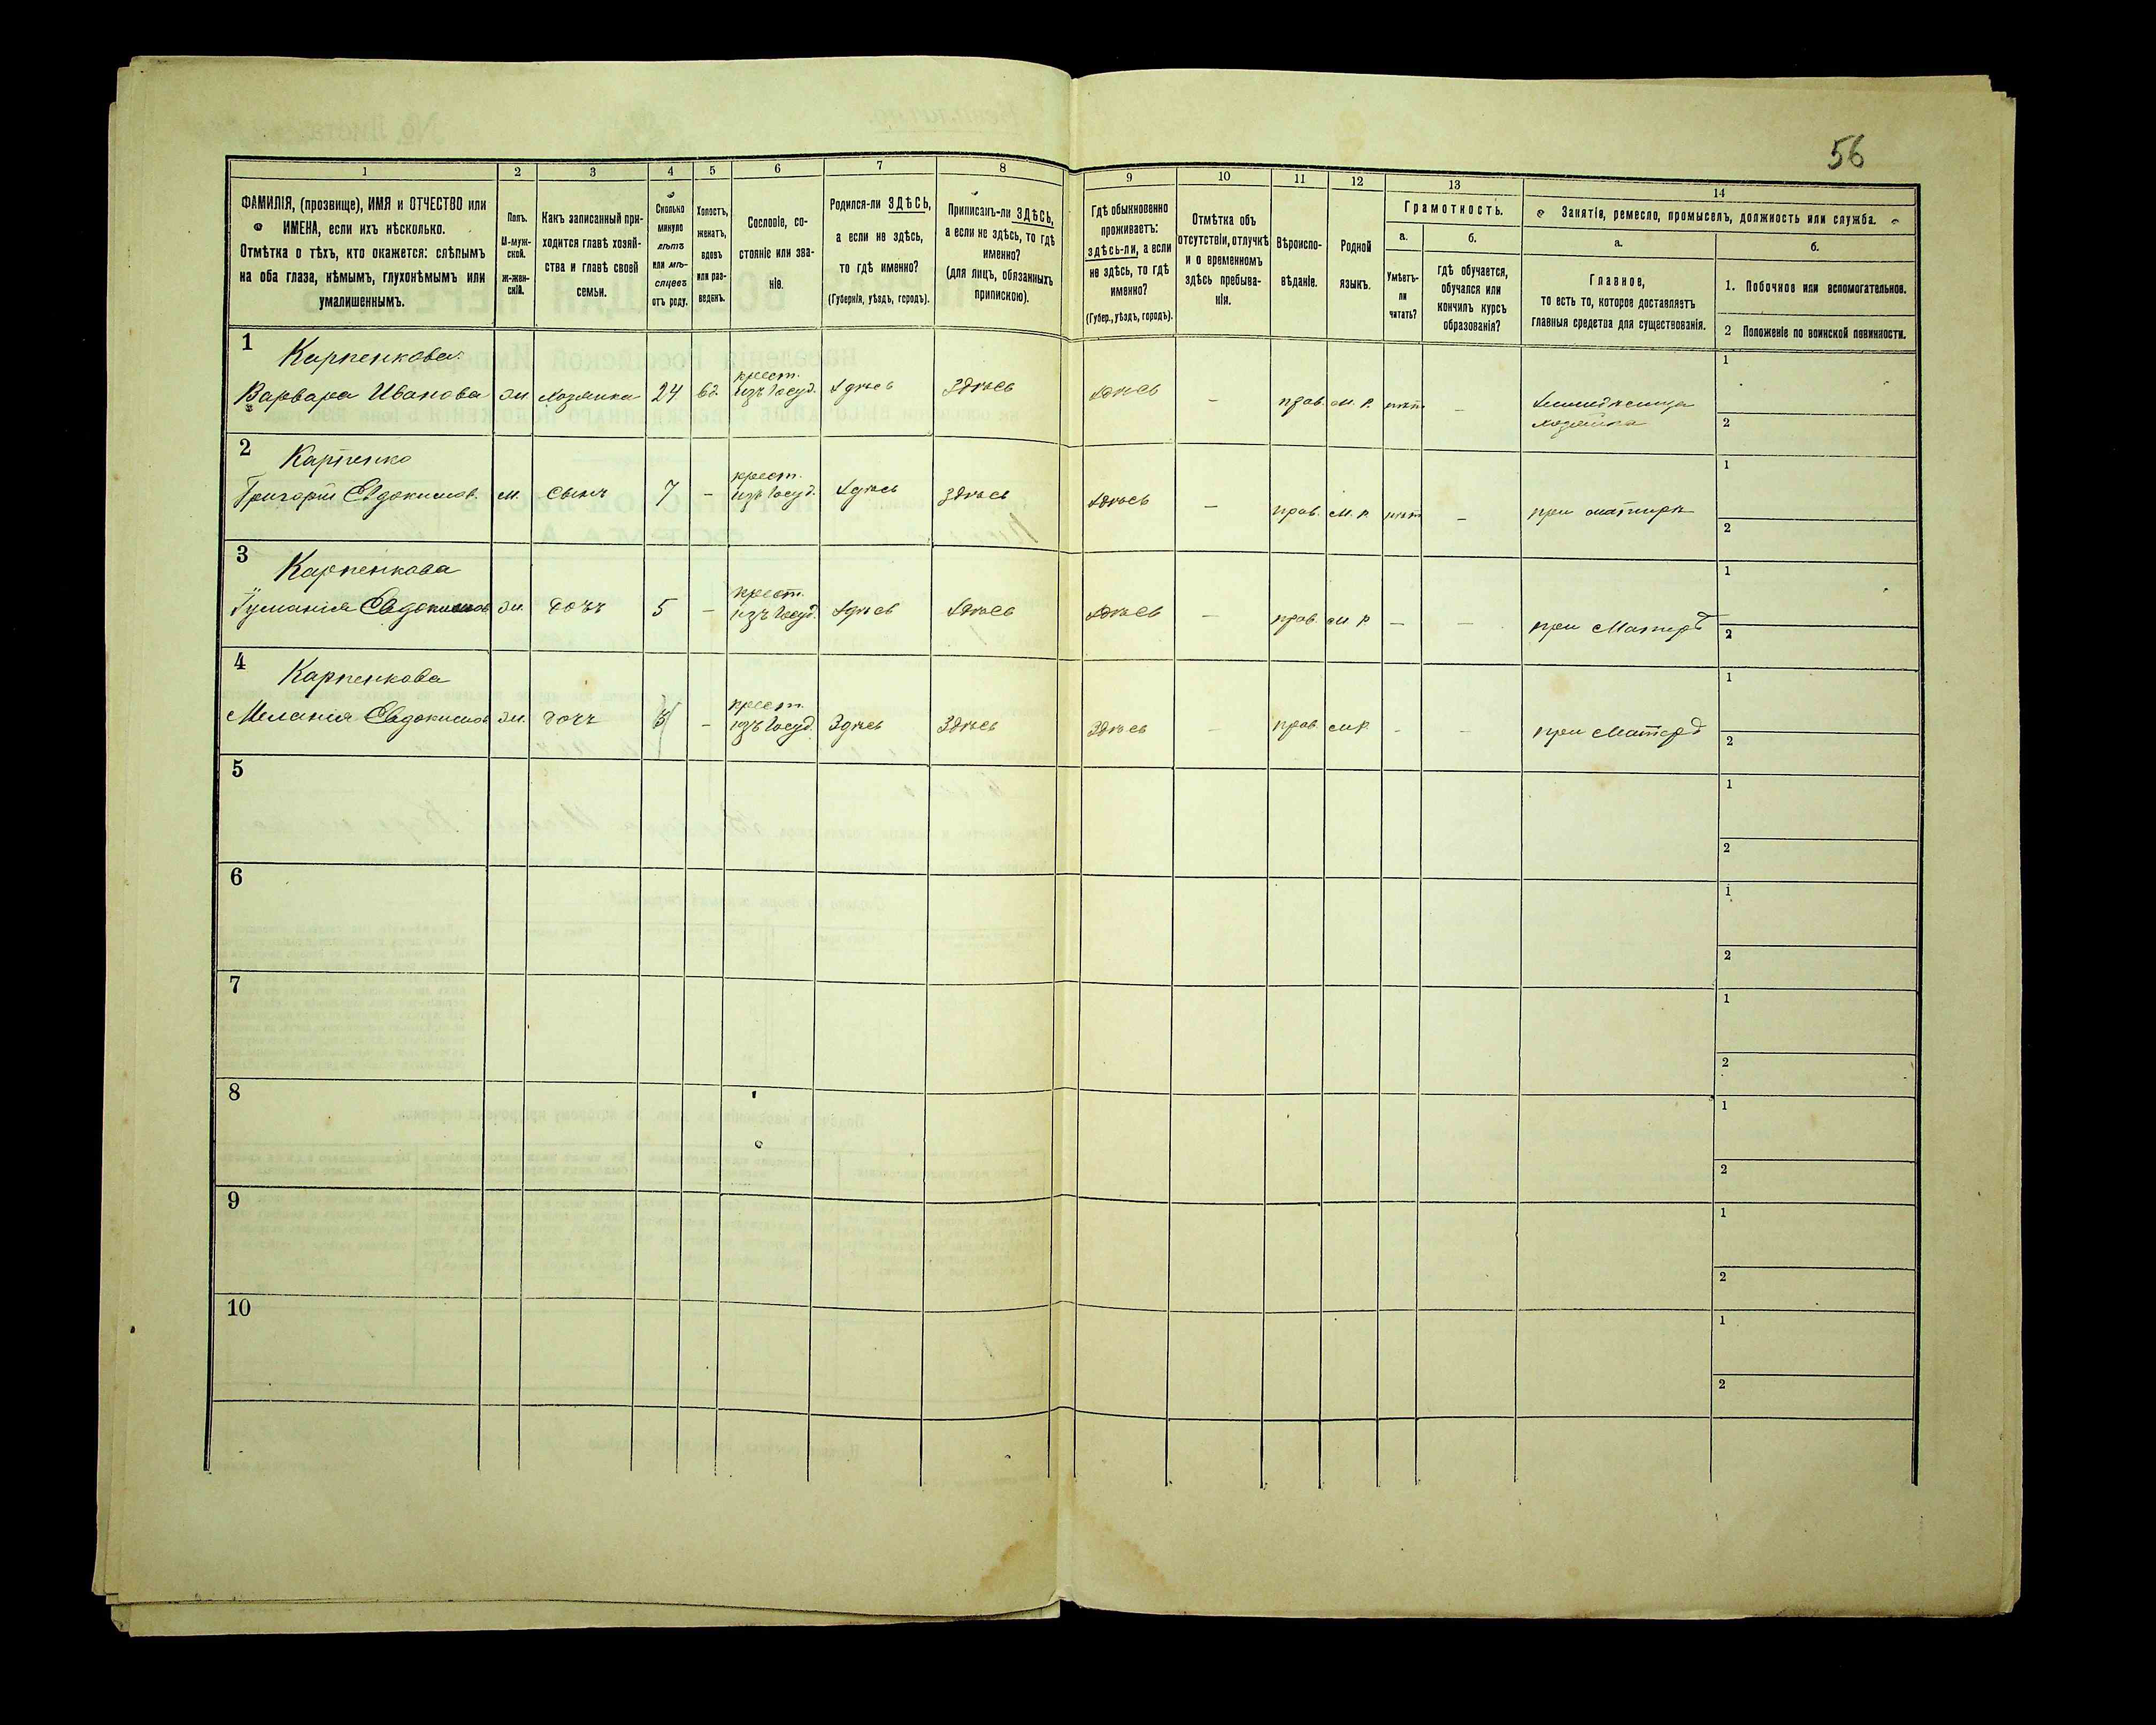 56
1 2 3 4 5 6 7 8 9 10 11 12 13 14
ФАМИЛІЯ, (прозвище), ИМЯ и ОТЧЕСТВО или
ИМЕНА, если ихъ нѣсколько.
Отмѣтка о тѣхъ, кто окажется: слѣпымъ
на оба глаза, нѣмымъ, глухонѣмымъ или
умалишеннымъ.
Полъ.
М-муж-
ской.
Ж-жен-
скій.
Какъ записанный при-
ходится главѣ хозяй-
ства и главѣ своей
семьи.
Сколько
минуло
лѣтъ
или мѣ-
сяцевъ
отъ роду.
Холостъ,
женатъ,
вдовъ
или раз-
веденъ.
Сословіе, со-
стояніе или зва-
ніе.
Родился-ли ЗДѢСЬ,
а если не здѣсь,
то гдѣ именно?
(Губернія, уѣздъ, городъ).
Приписанъ-ли ЗДѢСЬ,
а если не здѣсь, то гдѣ
именно?
(для лицъ, обязанныхъ
припискою).
Гдѣ обыкновенно
проживаетъ:
здѣсь-ли, а если
не здѣсь, то гдѣ
именно?
(Губер., уѣздъ, городъ).
Отмѣтка объ
отсутствіи, отлучкѣ
и о временномъ
здѣсь пребыва-
ніи.
Вѣроиспо-
вѣданіе.
Родной
языкъ.
Грамотность.
а.
Умѣетъ-
ли
читать?
б.
гдѣ обучается,
обучался или
кончилъ курсъ
образованія?
Занятія, ремесло, промыселъ, должность или служба.
а.
Главное,
то есть то, которое доставляетъ
главныя средства для существованія.
б.
1. Побочное или вспомогательное.
2 Положеніе по воинской повинности.
1 Карпенкова
Варвара Иванова ж. хозяйка 24 вд. крест. изъ госуд. здѣсь здѣсь здѣсь - прав. м. р. нѣт -
хозяйка
1
2
2 Карпенко
Григорій Евдокимов. м. сынъ 7 - крест. изъ госуд. здѣсь здѣсь здѣсь - прав. м. р. нѣт - при матери
1
2
3 Карпенкова
Евдокимов ж. дочь 5 - крест. изъ госуд. здѣсь здѣсь здѣсь - прав. м. р. - - при Матерѣ
1
2
4 Карпенкова
Меланія Евдокимов ж. дочь 3 - крест. изъ госуд. Здѣсь Здѣсь Здѣсь - прав. м. р. - - при Матерѣ
1
2
5
1
2
6
1
2
7
1
2
8
1
2
9
1
2
10
1
2